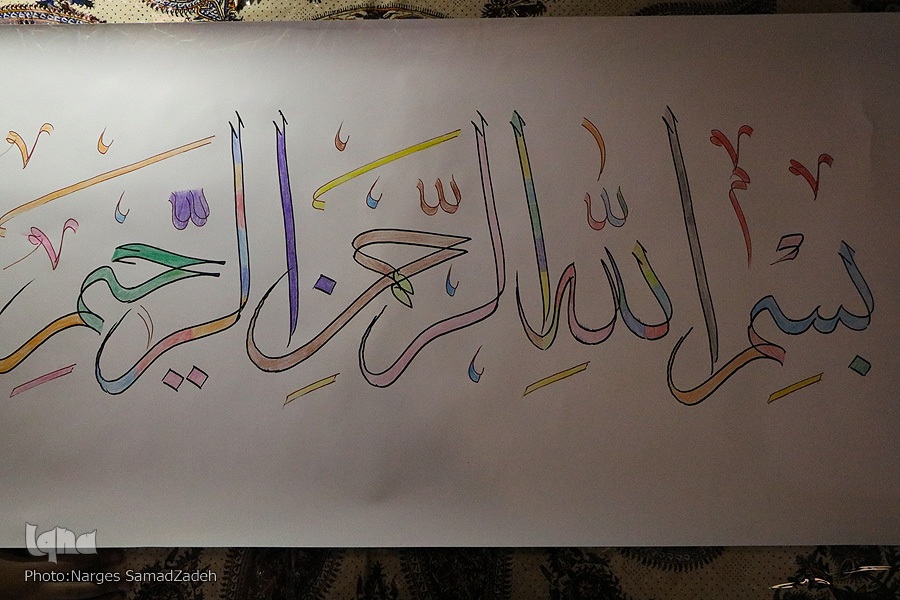 بِسْمِ اللّٰهِ الرَّحْمٰنِ الرَّحِيمِ
Iqna
Photo:Narges SamadZadeh